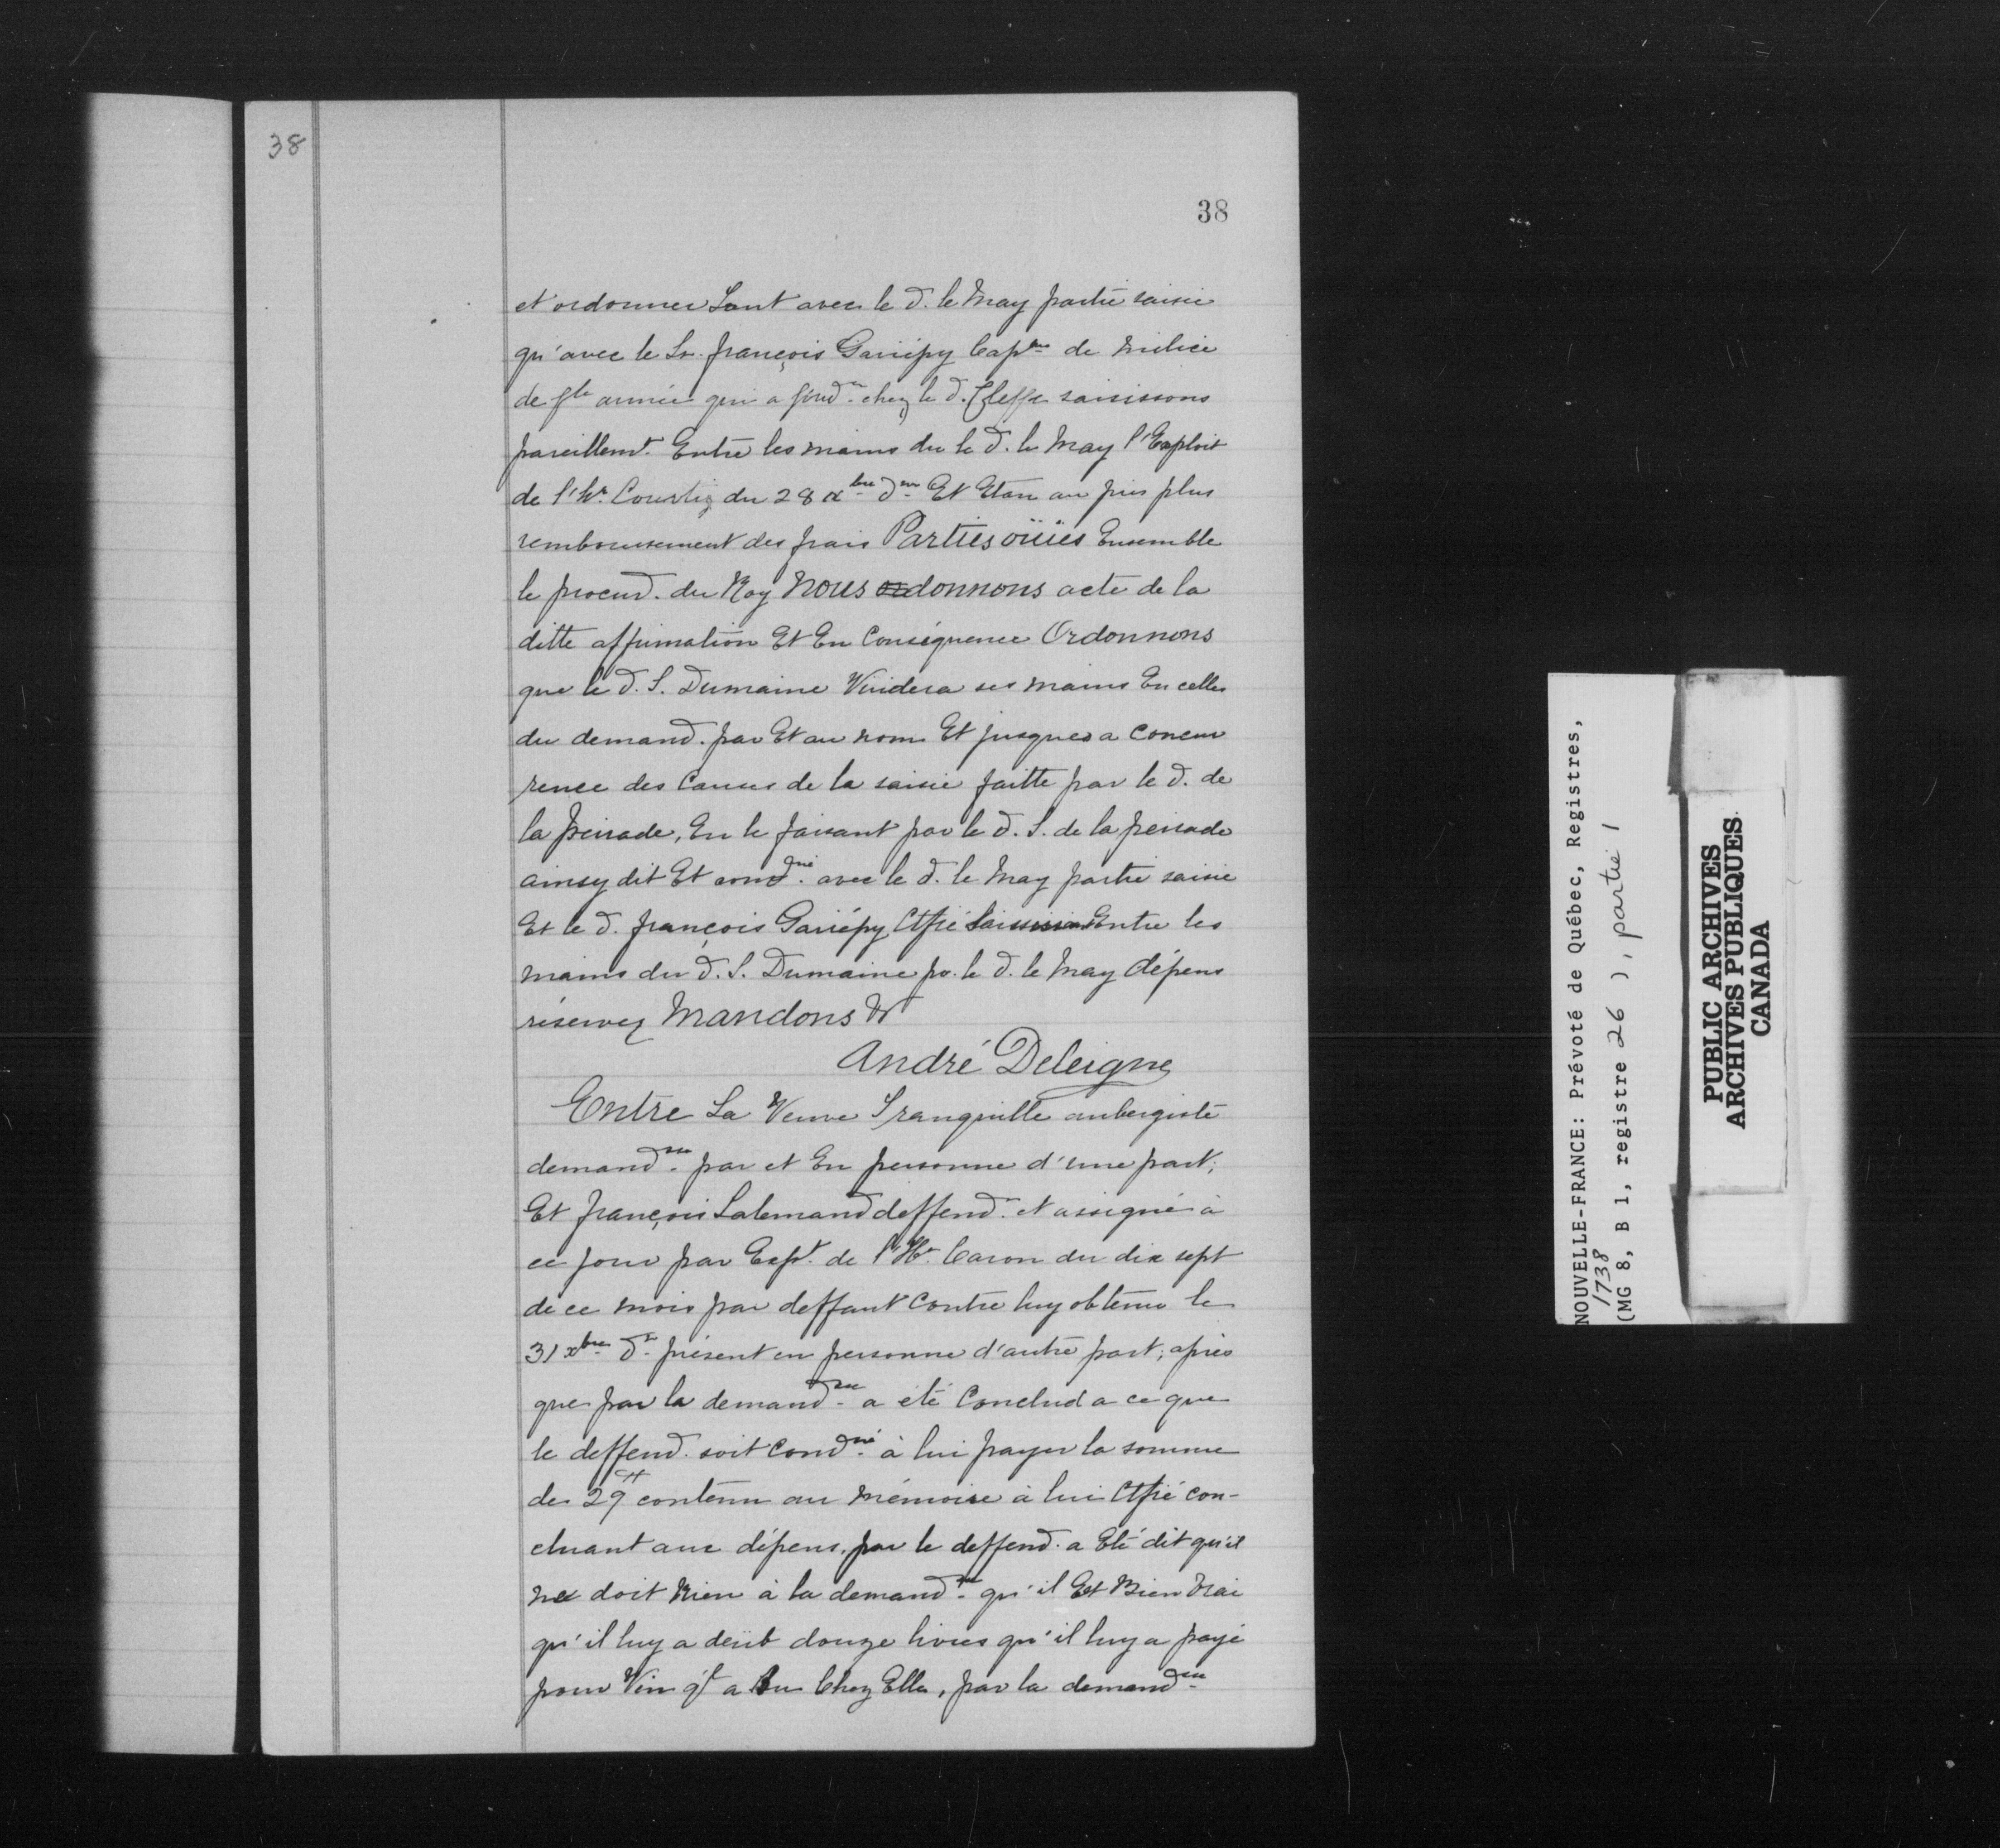 38
38
et ordonner Tant avec le d. le May partie saisie
qu'avec le Sr. françois Gariépy Cap.ne de Milice
de Ste année qui a fond.n chez le d. saisissons
pareillemt. Entre les mains du le d. le May l'Exploit
de l'hr. Courtiz du 28 xbre dr. Et Etan au pris plus
remboursement des frais Parties oüies Ensemble
le procud. du Roy Nous donnons acte de la
ditte affirmation Et En Conséquence Ordonnons
que le d. S. Dumaine Vuidera ses mains En celles
du demand. par Et au nom Et jusques a Concur
rence des Causes de la saisie faitte par le d. de
la perrade, En le faisant par le d. S. de la perrade
ainsy dit Et ordné. avec le d. le May partie saisie
Et le d. françois Gariépy Ctfié Saisissions Entre les
mains du d. S. Dumaine pr. le d. le May dépens
réservez Mandons &
André Deleigne
Entre La Veuve Tranquille aubergiste
demandsse. par et En personne d'une part;
Et françois Lalemand deffend.r et assigné à
ce jour par Expt. de l'Hr. Caron du dix sept
de ce mois par deffaut Contre luy obtenu le
31 xbre dr. présent en personne d'autre part; après
que par la demandsse. a été Conclud a ce que
le deffend. soit Condné. à lui payer la somme
de 29# contenu au Mémoire à lui Ctfié con-
cluant aux dépens, par le deffend. a Eté dit qu'il
ne doit Rien à la demandsse. qu'il Est Bien vrai
qu'il luy a deüb douze livres qu'il luy a payé
pour Vin qt a Bu Chez Elle, par la demandsse.
NOUVELLE-FRANCE: Prévoté de Québec, Registres,
1738
(MG 8, B 1, registre 26 ), partie 1
PUBLIC ARCHIVES
ARCHIVES PUBLIQUES
CANADA